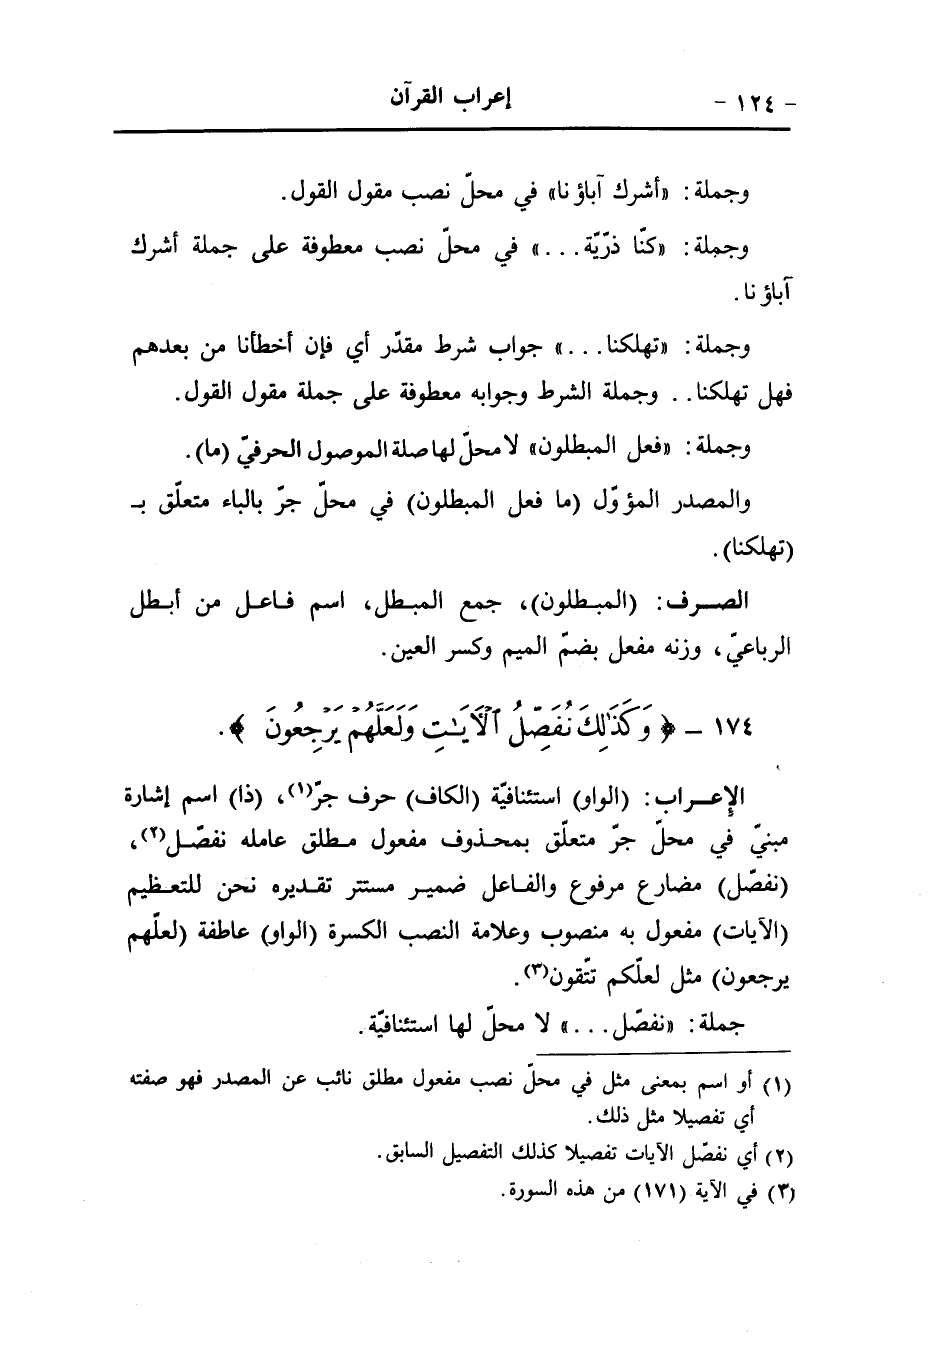 - ١٢٤ - إعراب القرآن
وجملة: «أشرك آباؤنا» في محلّ نصب مقول القول.
وجملة: «كنّا ذرّيّة...» في محلّ نصب معطوفة على جملة أشرك
آباؤنا.
وجملة: «تهلكنا...» جواب شرط مقدّر أي فإن أخطأنا من بعدهم
فهل تهلكنا.. وجملة الشرط وجوابه معطوفة على جملة مقول القول.
وجملة: «فعل المبطلون» لا محلّ لها صلة الموصول الحرفيّ (ما).
والمصدر المؤوّل (ما فعل المبطلون) في محلّ جرّ بالباء متعلّق بـ
(تهلكنا).
الصـرف: (المبـطلون)، جمع المبـطل، اسم فـاعـل من أبـطل
الرباعيّ، وزنه مفعل بضمّ الميم وكسر العين.
١٧٤ - ﴿ وَكَذَٰلِكَ نُفَصِّلُ ٱلْآيَـٰتِ وَلَعَلَّهُمْ يَرْجِعُونَ ﴾.
الإعـراب: (الواو) استئنافيّة (الكاف) حرف جرّ(١)، (ذا) اسم إشارة
مبنيّ في محلّ جرّ متعلّق بمحـذوف مفعول مـطلق عامله نفصّـل(٢)،
(نفصّل) مضارع مرفوع والفـاعل ضميـر مستتر تقـديره نحن للتعـظيم
(الآيات) مفعول به منصوب وعلامة النصب الكسرة (الواو) عاطفة (لعلّهم
يرجعون) مثل لعلّكم تتّقون(٣).
جملة: «نفصّل...» لا محلّ لها استئنافيّة.
(١) أو اسم بمعنى مثل في محلّ نصب مفعول مطلق نائب عن المصدر فهو صفته
أي تفصيلا مثل ذلك.
(٢) أي نفصّل الآيات تفصيلا كذلك التفصيل السابق.
(٣) في الآية (١٧١) من هذه السورة.